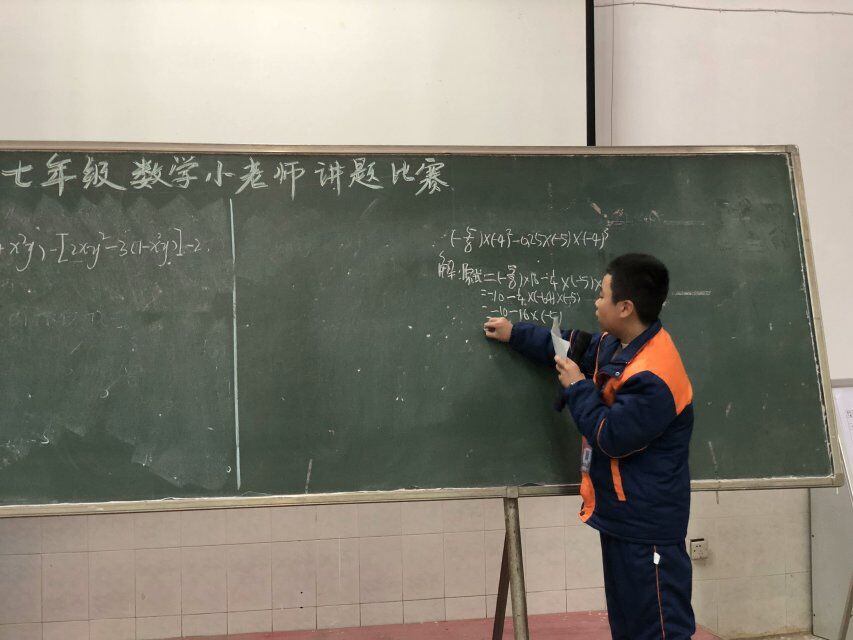 七年级数学小老师讲题比赛
x²y)-[2xy²-3(1-x²y)]-2
(-5/8)×(-4)²-0.25×(-5)×(-4)³
解:原式=(-5/8)×16-1/4×(-5)×
=-10-1/4×(-64)×(-5)
=-10-16×(-5)